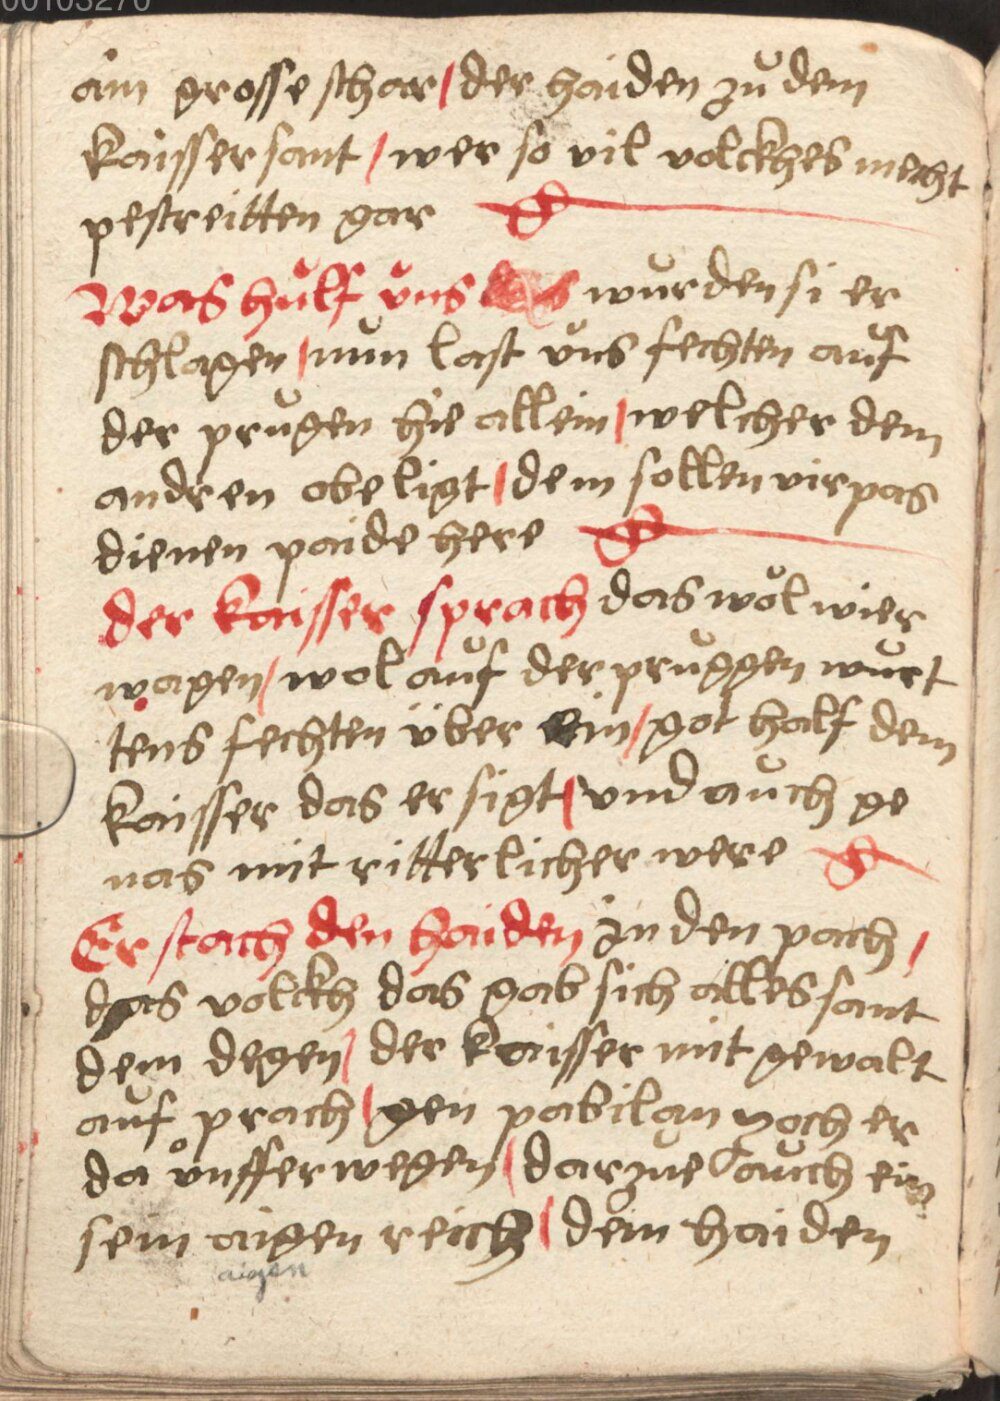 00103270
ain grosse schar / der haiden zů dem
kaisser sant / wer so vil volckhes mecht
pestreitten gar
Was hulf vns das wurden si er
schlagen / nun last vns fechten auf
der prugen hie allein / welcher dem
andren obe ligt / dem sollen vir pas
dienen paide here
der kaisser sprach das wöl wier
wagen / wol auf der pruggen wurt
tens fechten über ein / got half dem
kaisser das er sigt / vnd auch ge
nas mit ritterlicher were
Er stach den haiden in den pach /
das volckh das gab sich alles sant
dem degen / der kaisser mit gewalt
auf prach / gen pabilan zoch er
da vnffer wegen / dar zue auch ein
sein aigen reich / dem haiden
aigen